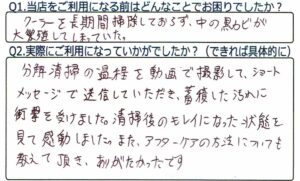 Q1.当店をご利用になる前はどんなことでお困りでしたか？
クーラーを長期間掃除しておらず、中の黒カビが
大繁殖してしまっていた。
Q2.実際にご利用になっていかがでしたか？（できれば具体的に）
分解清掃の過程を動画で撮影して、ショート
メッセージで送信していただき、蓄積した汚れに
衝撃を受けました。清掃後のキレイになった状態を
見て感動しました。また、アフターケアの方法についても
教えて頂き、ありがたかったです